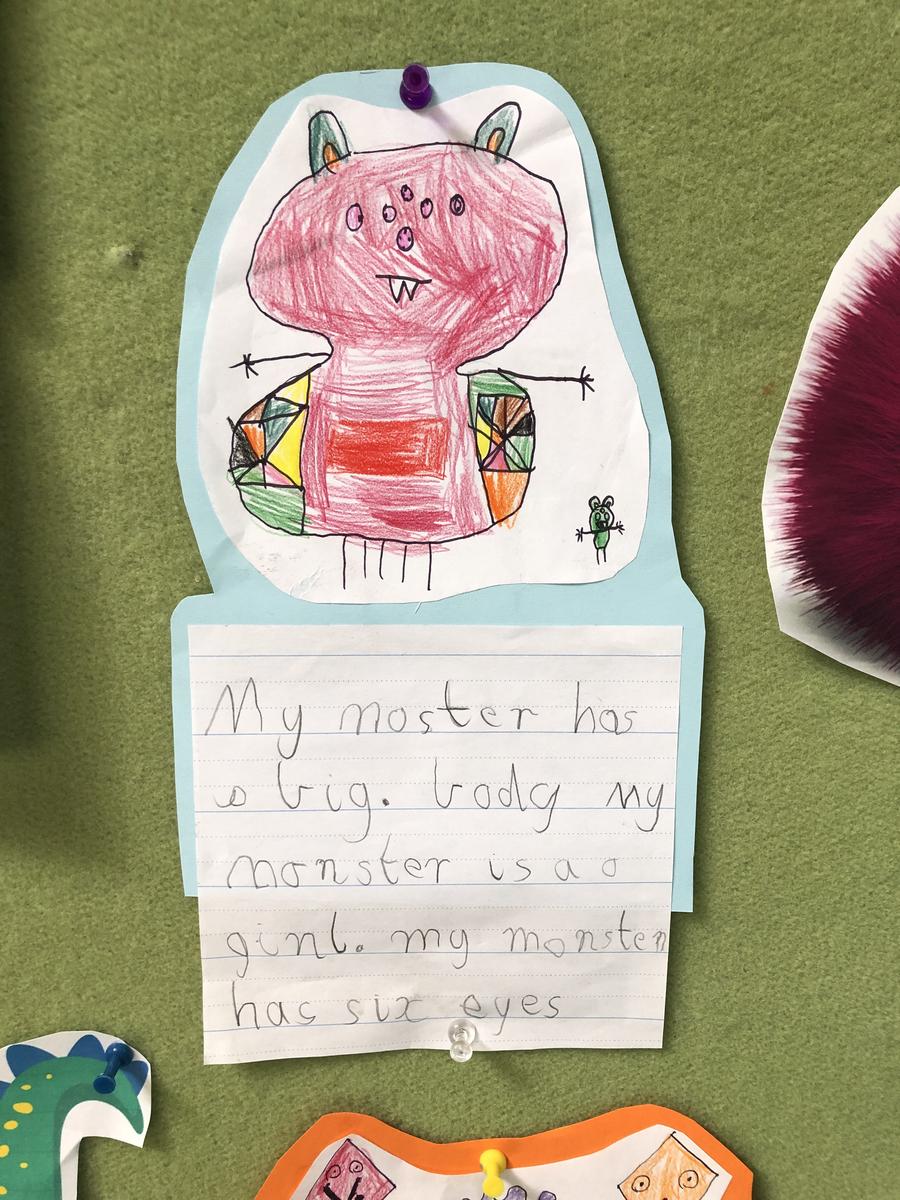 My moster has
a big. body my
monster is a a
girl. my monster
has six eyes